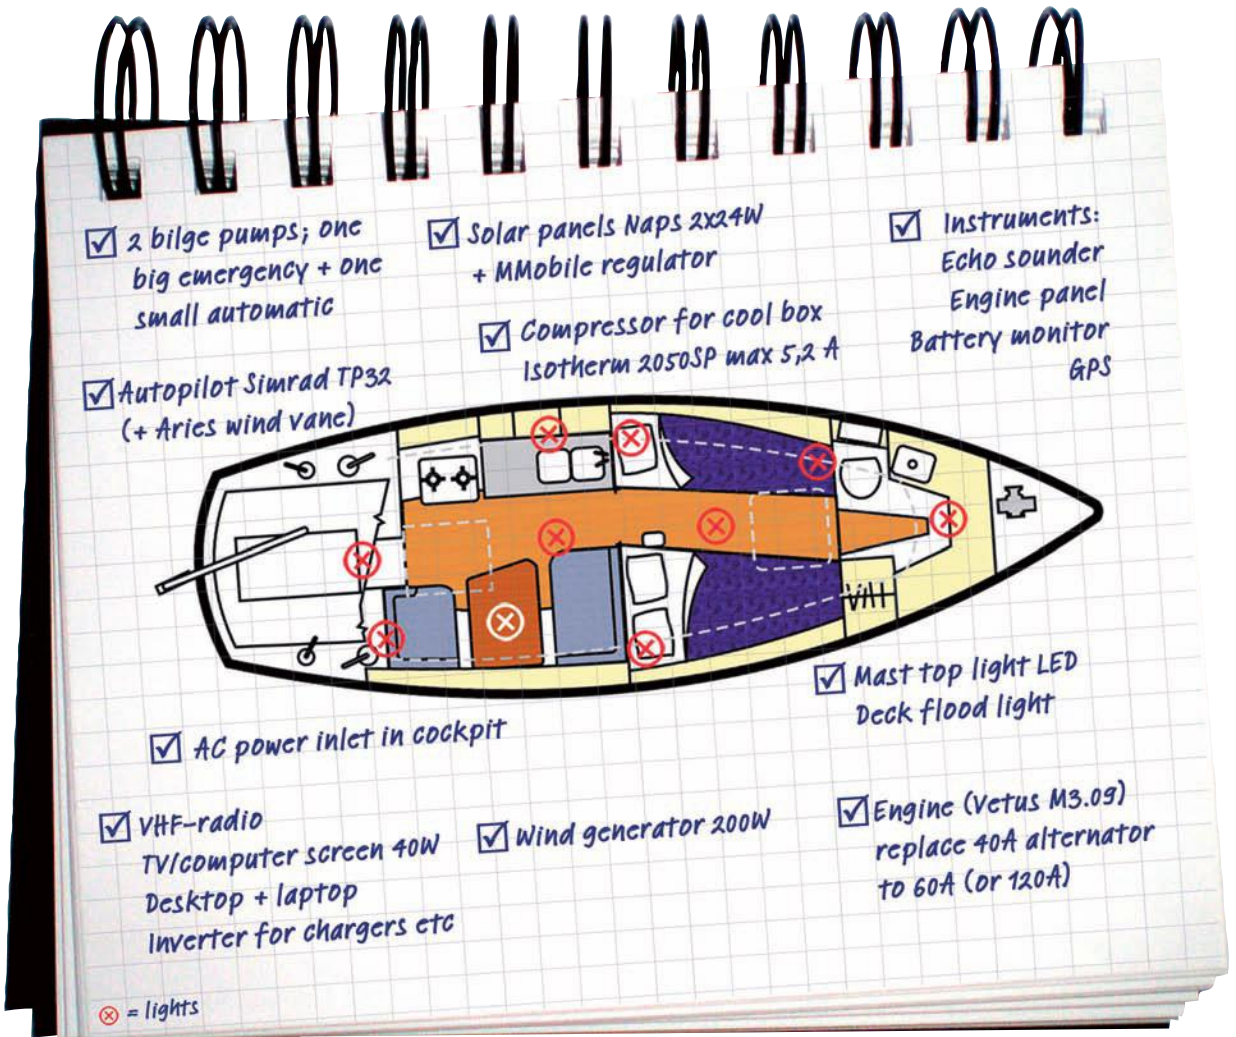 2 bilge pumps; one
big emergency + one
small automatic
Solar panels Naps 2x24W
+ MMobile regulator
Instruments:
Echo sounder
Engine panel
Battery monitor
GPS
Compressor for cool box
Isotherm 2050SP max 5,2 A
Autopilot Simrad TP32
(+ Aries wind vane)
Mast top light LED
Deck flood light
AC power inlet in cockpit
VHF-radio
TV/computer screen 40W
Desktop + laptop
Inverter for chargers etc
Wind generator 200W
Engine (Vetus M3.09)
replace 40A alternator
to 60A (or 120A)
= lights